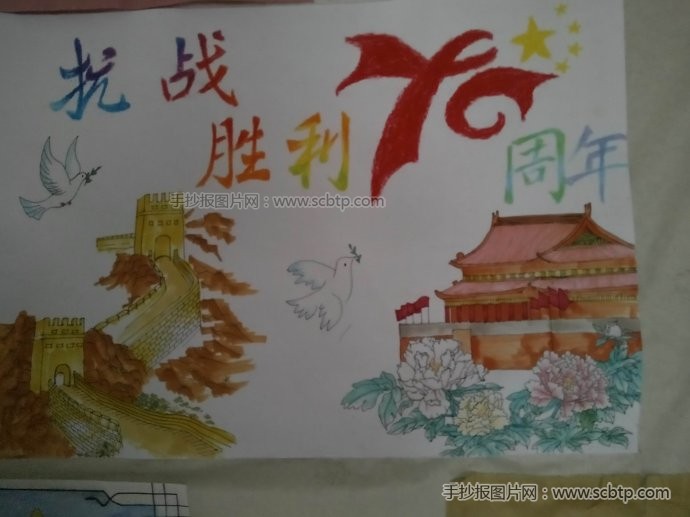 抗战
胜利70周年
手抄报图片网：www.scbtp.com
手抄报图片网：www.scbtp.com